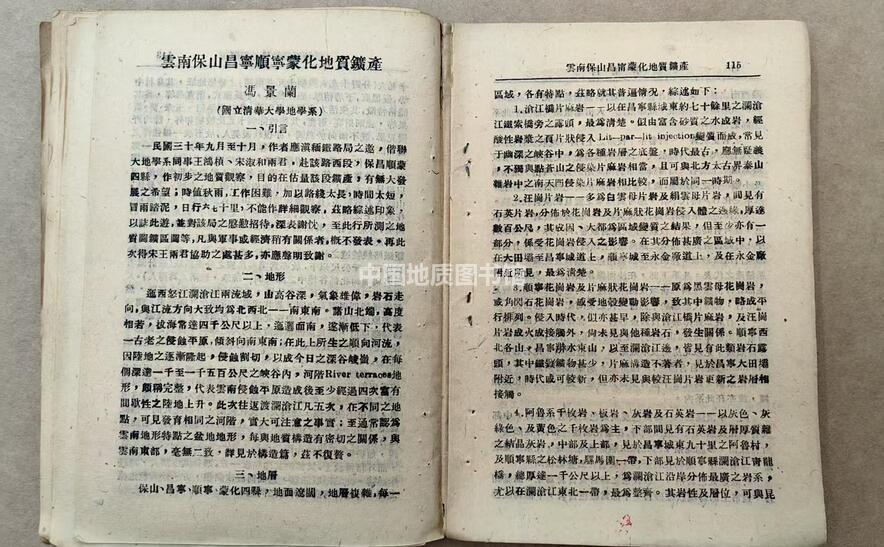 雲南保山昌寧順寧蒙化地質鑛產
馮景蘭
(國立清華大學地學系)
一、引言
民國三十年九月至十月,作者應滇緬鐵路局之邀,偕聯
大地學系同事王鴻禎、宋淑和兩君,赴該路西段,保昌順蒙
四縣,作初步之地質觀察,目的在估量該段鑛產,有無大發
展之希望;時值秋雨,工作困難,加以路綫太長,時間太短,
冒雨踏泥,日行六七十里,不能作詳細觀察,茲略綜述印象,
以誌此遊,並對該局之慇懃招待,深表謝忱,至此行所測之地
質圖鑛區圖等,凡與軍事或經濟稍有關係者,概不發表。再此
次得宋王兩君協助之處甚多,亦應聲明致謝。
二、地形
迤西怒江瀾滄江兩流域,山高谷深,氣象雄偉,岩石走
向,與江流方向大致均爲北西北——南東南。諸山北端,高度
相若,拔海常達四千公尺以上,迤邐而南,逐漸低下,代表
一古老之侵蝕平原,傾斜向南東南;在此上所生之順向河流,
因陸地之逐漸隆起,侵蝕割切,以成今日之深谷峻嶺,在每
個深達一千至一千五百公尺之峽谷內,河階River terraces地
形,頗稱完整,代表雲南侵蝕平原造成後至少經過四次富有
間歇性之陸地上升。此次往返渡瀾滄江凡五次,在不同之地
點,可見發育相同之河階,實大可注意之事實;至通常認爲
雲南地形特點之盆地地形,每與地質構造有密切之關係,與
雲南東部,毫無二致,詳見於構造篇,茲不復贅。
三、地層
保山、昌寧、順寧、蒙化四縣,地面遼闊,地層複雜,每一
雲南保山昌甯蒙化地質鑛產
115
區域,各有特點,茲略就其普遍情況,綜述如下:
1.滄江橋片麻岩——以在昌寧縣城東約七十餘里之瀾滄
江鐵索橋旁之露頭,最爲清楚。似由富含砂質之水成岩,經
酸性岩漿之頁片狀侵入Lit—par—lit injection變質而成,常見
于幽深之峽谷中,爲各種岩層之底盤,時代最古,應無疑義,
不獨與點蒼山之侵染片麻岩相當,且可與北方太古界泰山
雜岩中之南天門侵染片麻岩相比較,而屬於同一時期。
2.汪崗片岩——多爲白雲母片岩及絹雲母片岩,間見有
石英片岩,分佈於花崗岩及片麻狀花崗岩侵入體之邊緣,厚達
數百公尺,其成因、大都爲區域變質之結果,但至少亦有一
部分,係受花崗岩侵入之影響。在其分佈甚廣之區域中,以
在大田壩至昌寧城道上,順寧城至永金廠道上,及在永金廠
附近所見,最爲清楚。
3.順寧花崗岩及片麻狀花崗岩——原爲黑雲母花崗岩,
或角閃石花崗岩,感受地殼變動影響,致其中鑛物,略成平
行排列。侵入時代,似亦甚早,除與滄江橋片麻岩,及汪崗
片岩成火成接觸外,尙未見與他種岩石,發生關係。順寧西
北各山,昌寧枡水東山,以至瀾滄江邊,皆見有此類岩石露
頭,其中鐵鎂鑛物甚少,片麻構造不著者,見於昌寧大田壩
附近,時代或可較新,但亦未見與較汪崗片岩更新之岩層相
接觸。
4.阿魯系千枚岩、板岩、灰岩及石英岩——以灰色、灰
綠色、及黃色之千枚岩爲主,下部間見有石英岩及層厚質雜
之結晶灰岩,中部及上部,見於昌寧城東九十里之阿魯村,
及順寧縣之松林塘,驛馬圍一帶,下部見於順寧縣瀾滄江青龍
橋,總厚達一千公尺以上,爲瀾滄江沿岸分佈最廣之岩系,
尤以在瀾滄江東北一帶,最爲整齊。其岩性及層位,可與昆
中国地质图书